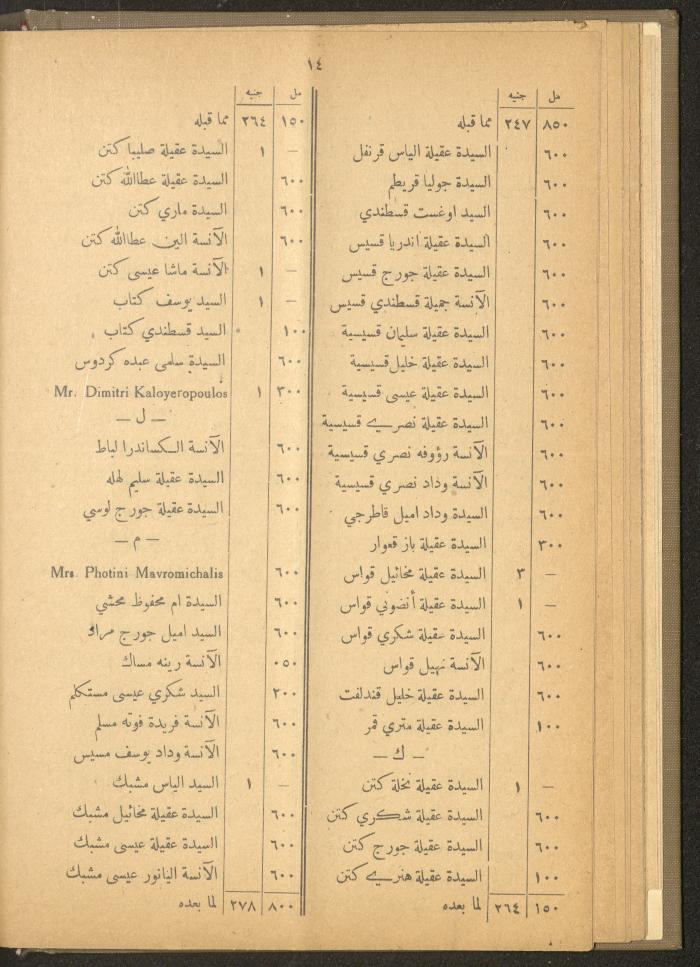 ١٤
مل جنيه
٨٥٠ ٢٤٧ مما قبله
٦٠٠ السيدة عقيلة الياس قرنفل
٦٠٠ السيدة جوليا قريطم
٦٠٠ السيد اوغست قسطندي
٦٠٠ السيدة عقيلة اندريا قسيس
٦٠٠ السيدة عقيلة جورج قسيس
٦٠٠ الآنسة جميلة قسطندي قسيس
٦٠٠ السيدة عقيلة سليمان قسيسية
٦٠٠ السيدة عقيلة خليل قسيسية
٦٠٠ السيدة عقيلة عيسى قسيسية
٦٠٠ السيدة عقيلة نصري قسيسية
٦٠٠ الآنسة رؤوفه نصري قسيسية
٦٠٠ الآنسة وداد نصري قسيسية
٦٠٠ السيدة وداد اميل قاطرجي
٣٠٠ السيدة عقيلة باز قعوار
— ٣ السيدة عقيلة مخائيل قواس
— ١ السيدة عقيلة أنضوني قواس
٦٠٠ السيدة عقيلة شكري قواس
٦٠٠ الآنسة نهيل قواس
٦٠٠ السيدة عقيلة خليل قندلفت
١٠٠ السيدة عقيلة متري قمر
— ك —
— ١ السيدة عقيلة نخلة كتن
٦٠٠ السيدة عقيلة شكري كتن
٦٠٠ السيدة عقيلة جورج كتن
١٠٠ السيدة عقيلة هنري كتن
١٥٠ ٢٦٤ لما بعده
مل جنيه
١٥٠ ٢٦٤ مما قبله
— ١ السيدة عقيلة صليبا كتن
٦٠٠ السيدة عقيلة عطاالله كتن
٦٠٠ السيدة ماري كتن
٦٠٠ الآنسة الين عطاالله كتن
— ١ الآنسة ماشا عيسى كتن
— ١ السيد يوسف كتاب
١٠٠ السيد قسطندي كتاب
٦٠٠ السيدة سلمى عبده كردوس
٣٠٠ ١ Mr. Dimitri Kaloyeropoulos
— ل —
٦٠٠ الآنسة الكساندرا لباط
٦٠٠ السيدة عقيلة سليم لهله
٦٠٠ السيدة عقيلة جورج لوسي
— م —
٦٠٠ Mrs. Photini Mavromichalis
٦٠٠ السيدة ام محفوظ محشي
٦٠٠ السيد اميل جورج مراد
٠٥٠ الآنسة رينه مساك
٢٠٠ السيد شكري عيسى مستكلم
٦٠٠ الآنسة فريدة فوته مسلم
٦٠٠ الآنسة وداد يوسف مسيس
— ١ السيد الياس مشبك
٦٠٠ السيدة عقيلة مخائيل مشبك
٦٠٠ السيدة عقيلة عيسى مشبك
٦٠٠ الآنسة اليانور عيسى مشبك
٨٠٠ ٢٧٨ لما بعده